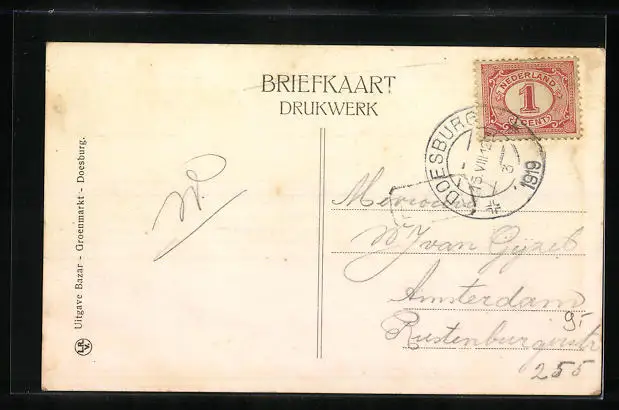 BRIEFKAART
DRUKWERK
NEDERLAND
1
CENT
DOESBURG
15 VIII 12
3
1919
Uitgave Bazar - Groenmarkt - Doesburg.
W.
van Gyzel
Amsterdam
9.-
Rustenburgerstr
255